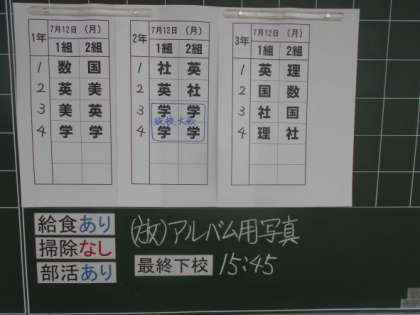 1年 7月12日 (月)
1組 2組
1 数 国
2 英 美
3 美 英
4 学 学
2年 7月12日 (月)
1組 2組
1 社 英
2 英 社
3 学 学
4 学 学
3年 7月12日 (月)
1組 2組
1 英 理
2 国 数
3 社 国
4 理 社
給食あり
掃除なし
部活あり
(放)アルバム用写真
最終下校 15:45